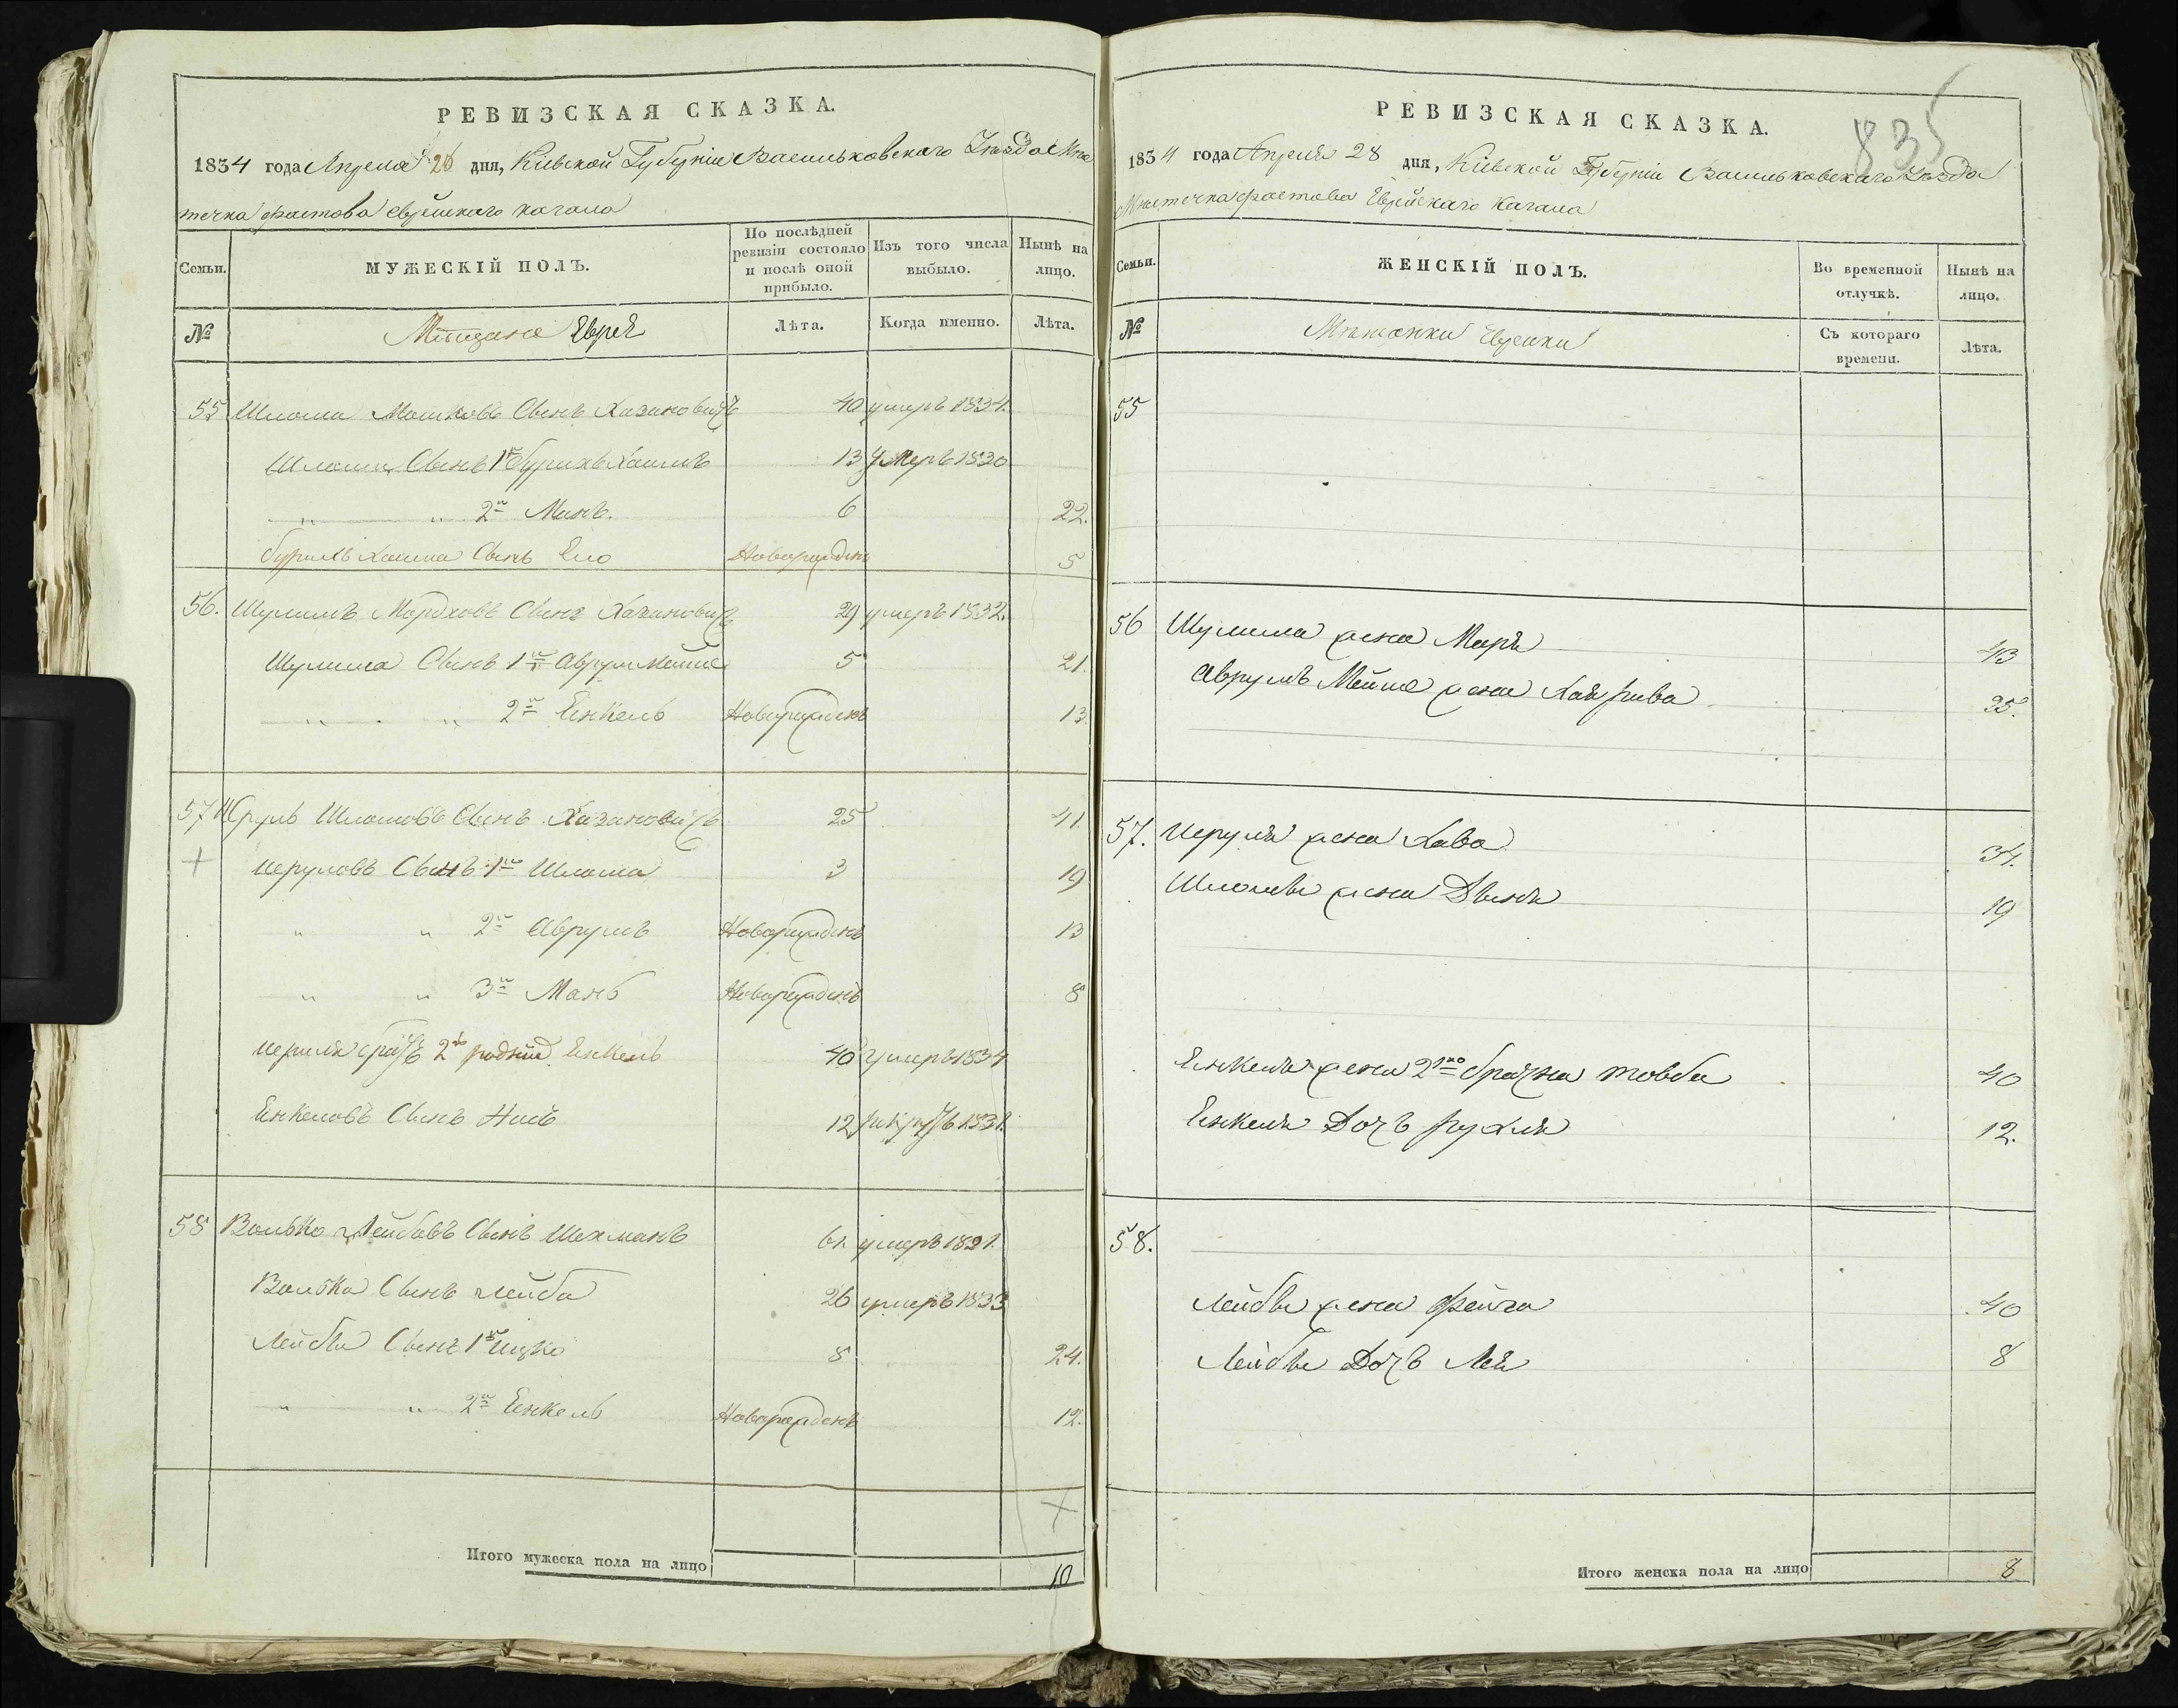 РЕВИЗСКАЯ СКАЗКА.
1834 года Апреля 28 дня, Кіевской Губерніи Васильковскаго Уезда Мѣс
течка Фастова Еврейскаго кагала
Семьи. МУЖЕСКІЙ ПОЛЪ. По послѣдней ревизіи состояло и послѣ оной прибыло. Изъ того числа выбыло. Нынѣ на лицо.
№ Мѣщане Евреи Лѣта. Когда именно. Лѣта.
55 Шлома Мошковъ Сынъ Хазановичъ 40 умеръ 1834.
Шломы Сынъ 1й Бурихъ Хаимъ 13 умеръ 1830
" " 2й Манъ. 6 22.
Бурихъ Хаима Сынъ Ело Новорожденъ 5
56. Шулимъ Мордховъ Сынъ Хазановичъ 29 умеръ 1832.
Шулима Сынъ 1й Аврум Мойше 5 21.
" " 2й Енкель Новорожденъ 13
57 Исруль Шломовъ Сынъ Хазановичъ 25 41.
+ Исруловъ Сынъ 1й Шлома 3 19
" " 2й Аврумъ Новорожденъ 13
" " 3й Манъ Новорожденъ 8
Исруля братъ 2й Енкель 40 умеръ 1834
Енкеловъ Сынъ 12 рекрутъ 1831.
58 Волько Лейбовъ Сынъ Шехманъ 61. умеръ 1821.
Волька Сынъ Лейба 26 умеръ 1833
Лейбы Сынъ 1й Ицко 8 24.
" " 2й Енкель Новорожденъ 12.
+
Итого мужеска пола на лицо 10
835
РЕВИЗСКАЯ СКАЗКА.
1834 года Апреля 28 дня, Кіевской Губерніи Васильковскаго Уезда
Мѣстечка Фастова Еврейскаго Кагала
Семьи. ЖЕНСКІЙ ПОЛЪ. Во временной отлучкѣ. Нынѣ на лицо.
№ Мѣщанки Еврейки Съ котораго времени. Лѣта.
55
56 Шулима жена Маря 43
Аврумъ Мойше жена Хая рива 25.
57. Исруля жена Хава 34.
Шломы жена Двыня 19
Енкеля жена 2го брачна товба 40
Енкеля Дочъ рухля 12.
58.
Лейбы жена Фейга 40
Лейбы Дочъ Лея 8
Итого женска пола на лицо 8